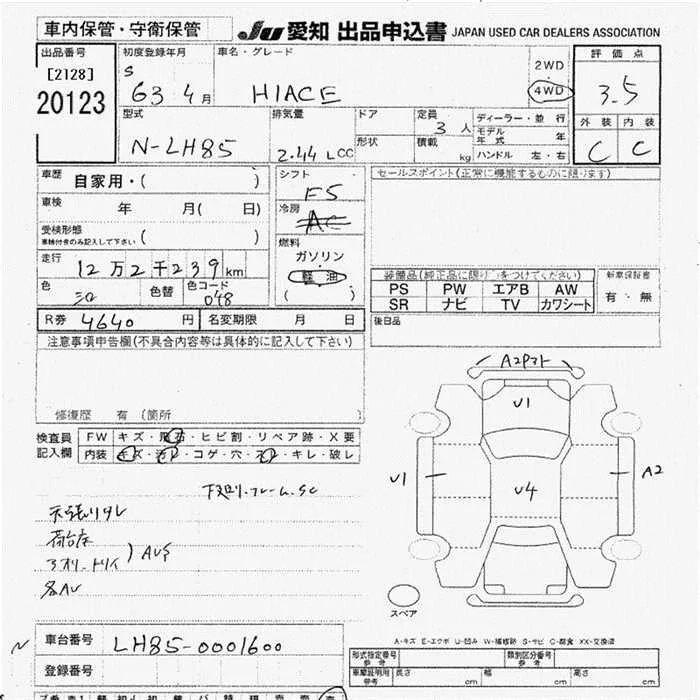 車内保管・守衛保管
JU 愛知 出品申込書 JAPAN USED CAR DEALERS ASSOCIATION
出品番号 初度登録年月 車名・グレード 評価点
[2128] S 2WD
20123 63 4月 HIACE 4WD 3.5
型式 排気量 ドア 定員 3人 ディーラー・並行 外装 内装
形状 積載 kg モデル年式 年
N-LH85 2.44L CC ハンドル 左・右 C C
車歴 自家用・( )
シフト F5
セールスポイント(正常に機能するものに限ります)
車検 年 月( 日)
冷房 AC
受検形態 ( )
車検付きのみ記入して下さい
燃料
ガソリン
走行 12万2千239km
軽油
( )
装備品(純正品に限り○をつけてください) 新車保証書
色 色替 色コード 048
PS PW エアB AW 有・無
SR ナビ TV カワシート
R券 4640円 名変期限 月 日
後日品
注意事項申告欄(不具合内容等は具体的に記入して下さい)
修復歴 有 (箇所
検査員 FW キズ・飛石・ヒビ割・リペア跡・X要
記入欄 内装 キズ・汚れ・コゲ・穴・スレ・キレ・破レ
A2
U1
U1
U4
A2
下廻リ・フレーム・SC
荷台床
各AU
スペア
A-キズ E-エクボ U-凹み W-補修跡 S-サビ C-腐食 XX-交換済
車台番号 LH85-0001600
登録番号
形式指定番号 参考 類別区分番号 参考
車両寸法 参考 長さ cm 幅 cm 高さ cm